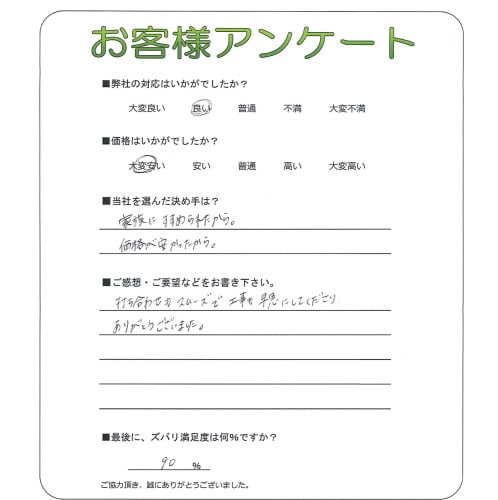 お客様アンケート
■弊社の対応はいかがでしたか?
大変良い 良い 普通 不満 大変不満
■価格はいかがでしたか?
大変安い 安い 普通 高い 大変高い
■当社を選んだ決め手は?
家族にすすめられたから。
価格が安かったから。
■ご感想・ご要望などをお書き下さい。
打ち合わせもスムーズで工事も早急にしてくださり
ありがとうございました。
■最後に、ズバリ満足度は何%ですか?
90 %
ご協力頂き、誠にありがとうございました。